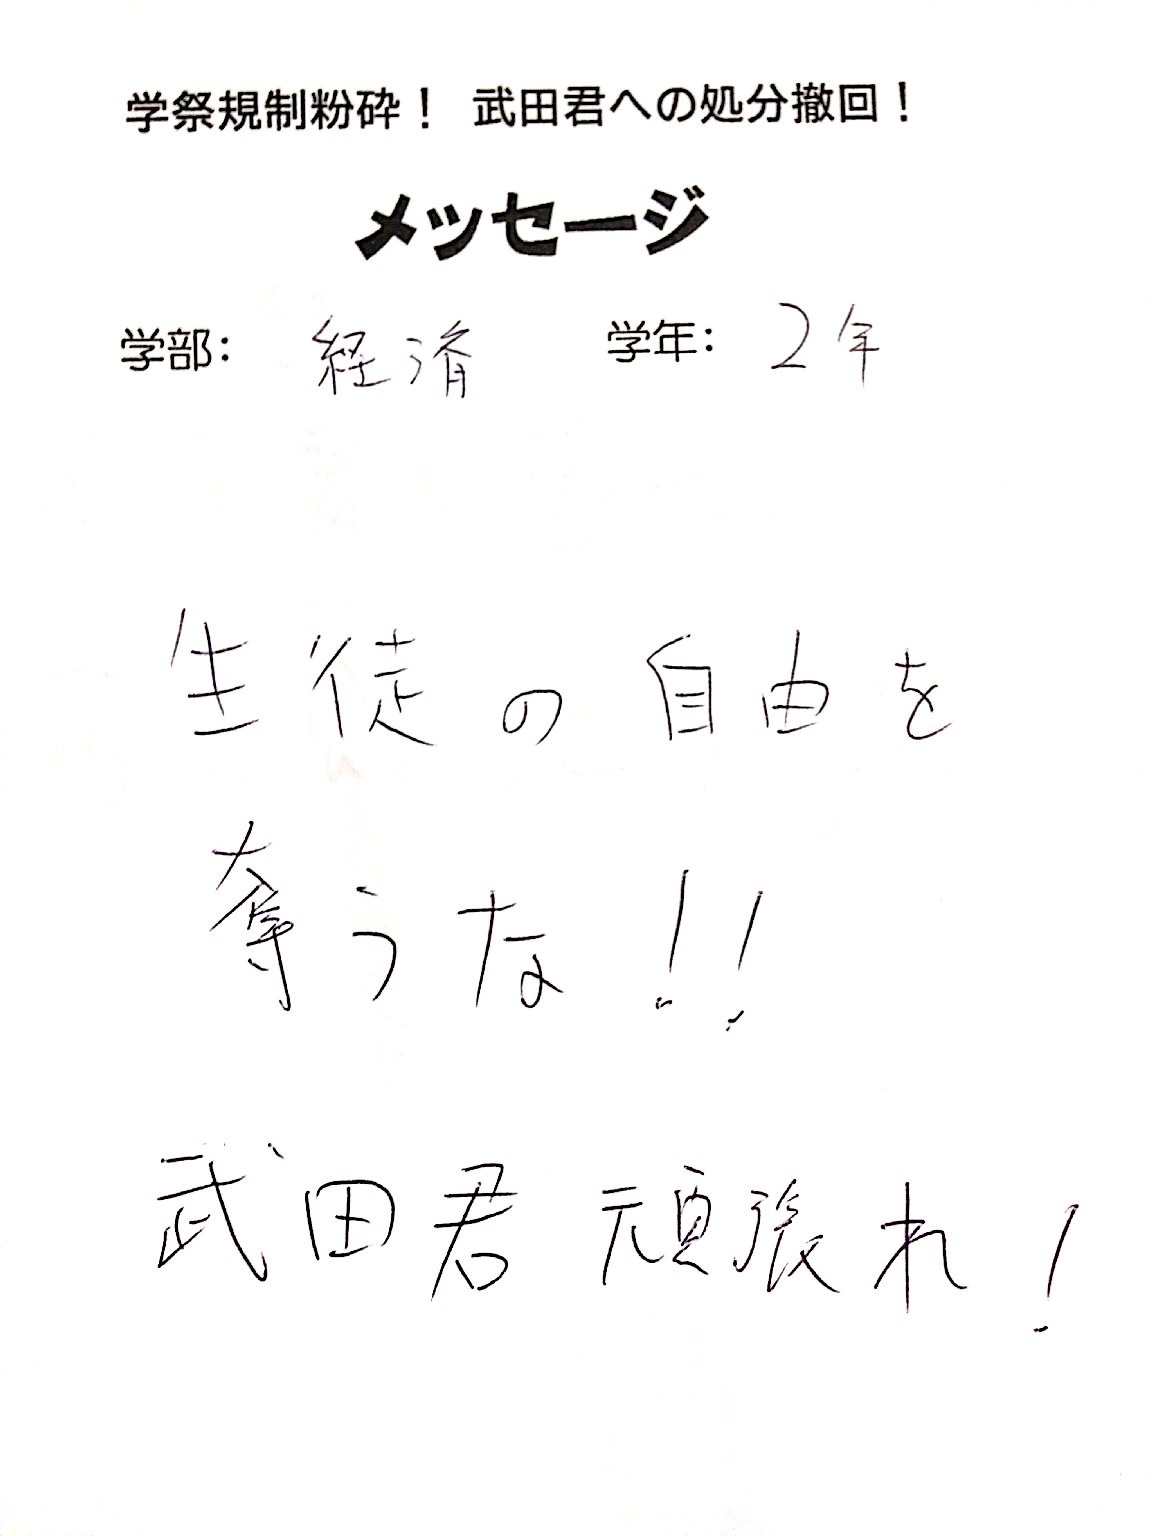 学祭規制粉砕！ 武田君への処分撤回！
メッセージ
学部： 経済 学年： 2年
生徒の自由を
奪うな！！
武田君 頑張れ！